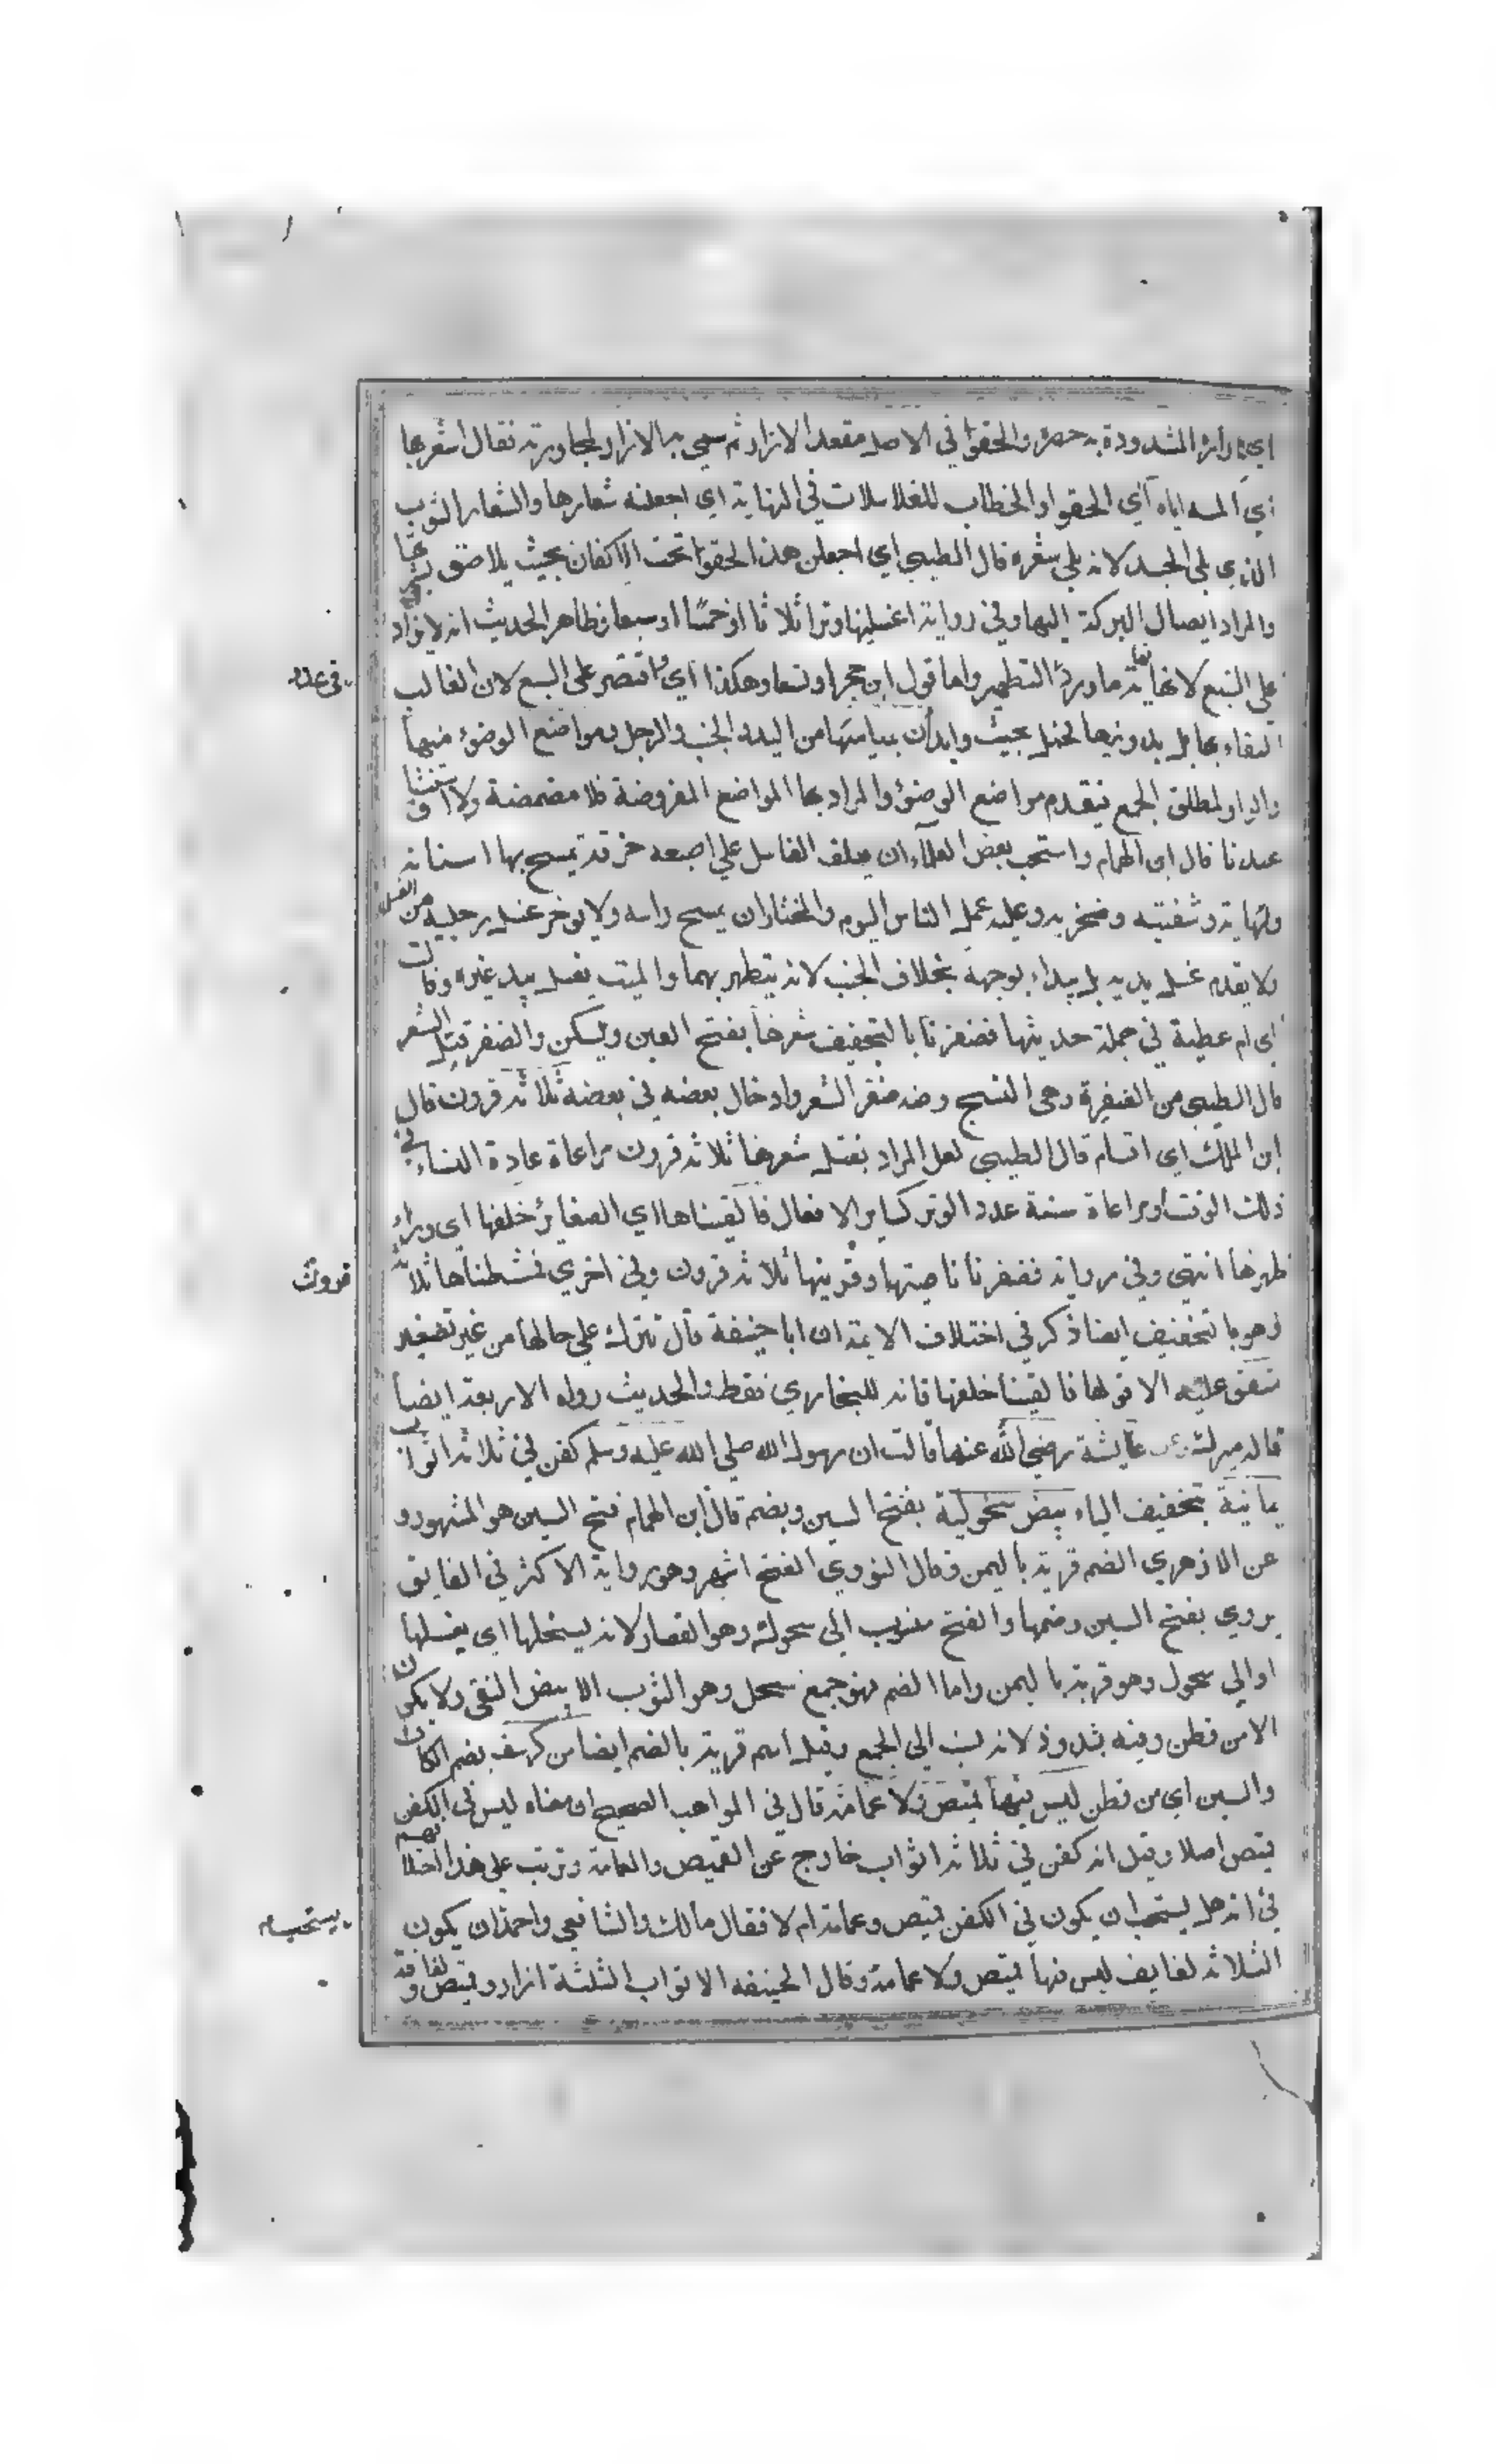 اي ازاره المشدودة به خصره والحقو في الاصل مقعد الازار ثم سمي به الازار لمجاورته فقال اشعرنها
اي المسه اياه اي الحقو والخطاب للغاسلات في النهاية اي اجعلنه شعارها والشعار الثوب
الذي يلي الجسد لانه يلي شعره قال الطيبي اي اجعلن هذا الحقو تحت الاكفان بحيث يلاصق بشرتها
والمراد ايصال البركة اليها وفي رواية اغسلنها وترا ثلاثا او خمسا او سبعا وظاهر الحديث انه لا يزاد
علي السبع لانها نهاية ما ورد في عدد التطهير واما قول ابن حجر او تسعا وهكذا اي واقتصر علي السبع لان الغالب
النقاء بها بل بدونها وابدأن بميامنها من اليد والجنب والرجل ومواضع الوضوء منها
والواو لمطلق الجمع فيقدم مواضع الوضوء والمراد بها المواضع المفروضة فلا مضمضة ولا استنشاق
عندنا قال ابن الهمام واستحب بعض العلماء ان يلف الغاسل علي اصبعه خرقة يمسح بها اسنانه
ولهاته وشفتيه ومنخريه وعليه عمل الناس اليوم والمختار ان يمسح راسه ولا يوخر غسل رجليه من الغسل
ولا يقدم غسل يديه بل يبداء بوجهه بخلاف الجنب لانه يتطهر بهما والميت يغسل بيد غيره وقالت
اي ام عطية في جملة حديثها فضفرنا بالتخفيف شعرها بفتح العين ويسكن والضفر فتل الشعر
قال الطيبي من الضفيرة وهي النسج ومنه ضفر الشعر وادخال بعضه في بعضه ثلاثة قرون قال
ابن الملك اي اقسام قال الطيبي لعل المراد بفتل شعرها ثلاثة قرون مراعاة عادة النساء في
ذلك الوقت او مراعاة سنة عدد الوتر كساير الافعال فالقيناها اي الضفاير خلفها اي وراء
ظهرها انتهي وفي رواية فضفرنا ناصيتها وقرنيها ثلاثة قرون وفي اخري فمشطناها ثلاثة قرون
وهو بالتخفيف ايضا ذكر في اختلاف الايمة ان ابا حنيفة قال تترك علي حالها من غير تضفير
متفق عليه الا قولها فالقينا خلفها فانه للبخاري فقط والحديث رواه الاربعة ايضا
قاله ميرك وعن عايشة رضي الله عنها قالت ان رسول الله صلي الله عليه وسلم كفن في ثلاثة اثواب
يمانية بتخفيف الياء بيض سحولية بفتح السين وبضم قال ابن الهمام فتح السين هو المشهور و
عن الازهري الضم قرية باليمن وقال النووي الفتح اشهر وهو رواية الاكثر في الفايق
يروي بفتح السين وضمها والفتح منسوب الي سحول وهو القصار لانه يسحلها اي يغسلها
او الي سحول وهو قرية باليمن واما الضم فهو جمع سحل وهو الثوب الابيض النقي ولا يكون
الا من قطن وفيه شذوذ لانه نسب الي الجمع وقيل اسم قرية بالضم ايضا من كرسف بضم الكاف
والسين اي من قطن ليس فيها قميص ولا عمامة قال في المواهب الصحيح ان معناه ليس في الكفن
قميص اصلا وقيل انه كفن في ثلاثة اثواب خارج عن القميص والعمامة وترتب علي هذا اختلافهم
في انه هل يستحب ان يكون في الكفن قميص وعمامة ام لا فقال مالك والشافعي واحمد ان يكون يستحب
الثلاثة لفايف ليس فيها قميص ولا عمامة وقال الحنيفه الاثواب الثلثة ازار وقميص و لفافة